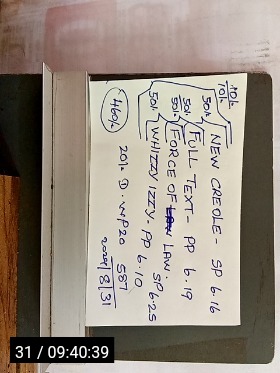 10k
10k
50k NEW CREOLE - SP 6.16
50k FULL TEXT - PP 6.19
50k FORCE OF LAW. SP 6.25
50k WHIZZY IZZY. PP 6.10
460k
20k D. WP20 587
2024/8/31
31 / 09:40:39